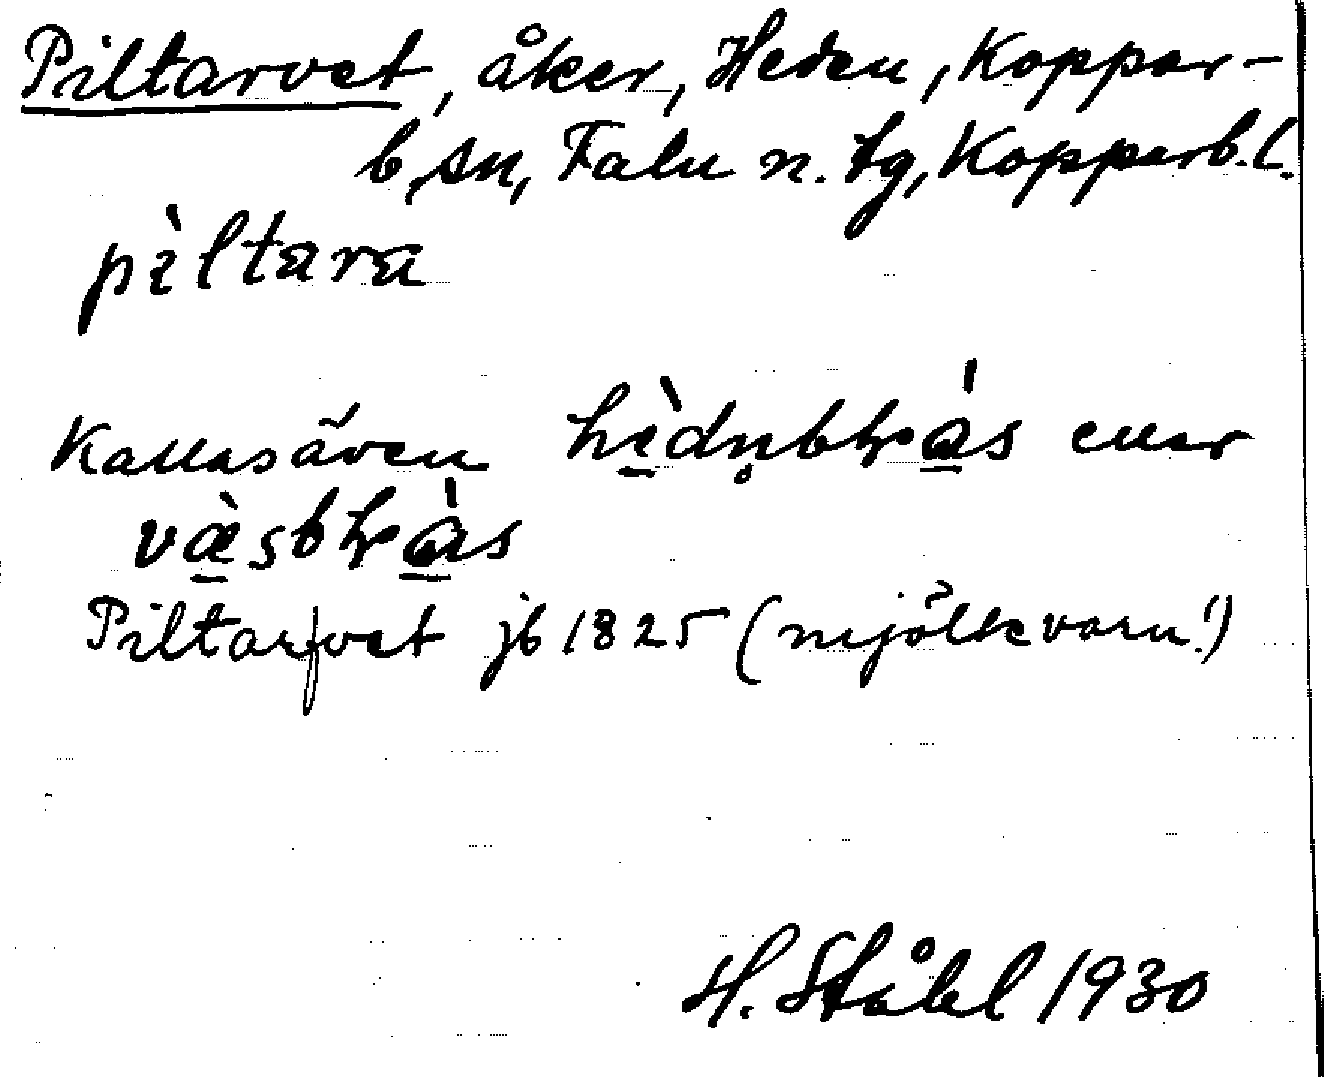 Piltarvet, åker, Heden, Koppar-
b. sn, Falu n. tg, Kopparb. l.
pìltara
Kallas även
eller
Piltarfvet jb 1825 (mjölkvarn!)
H. Ståhl 1930